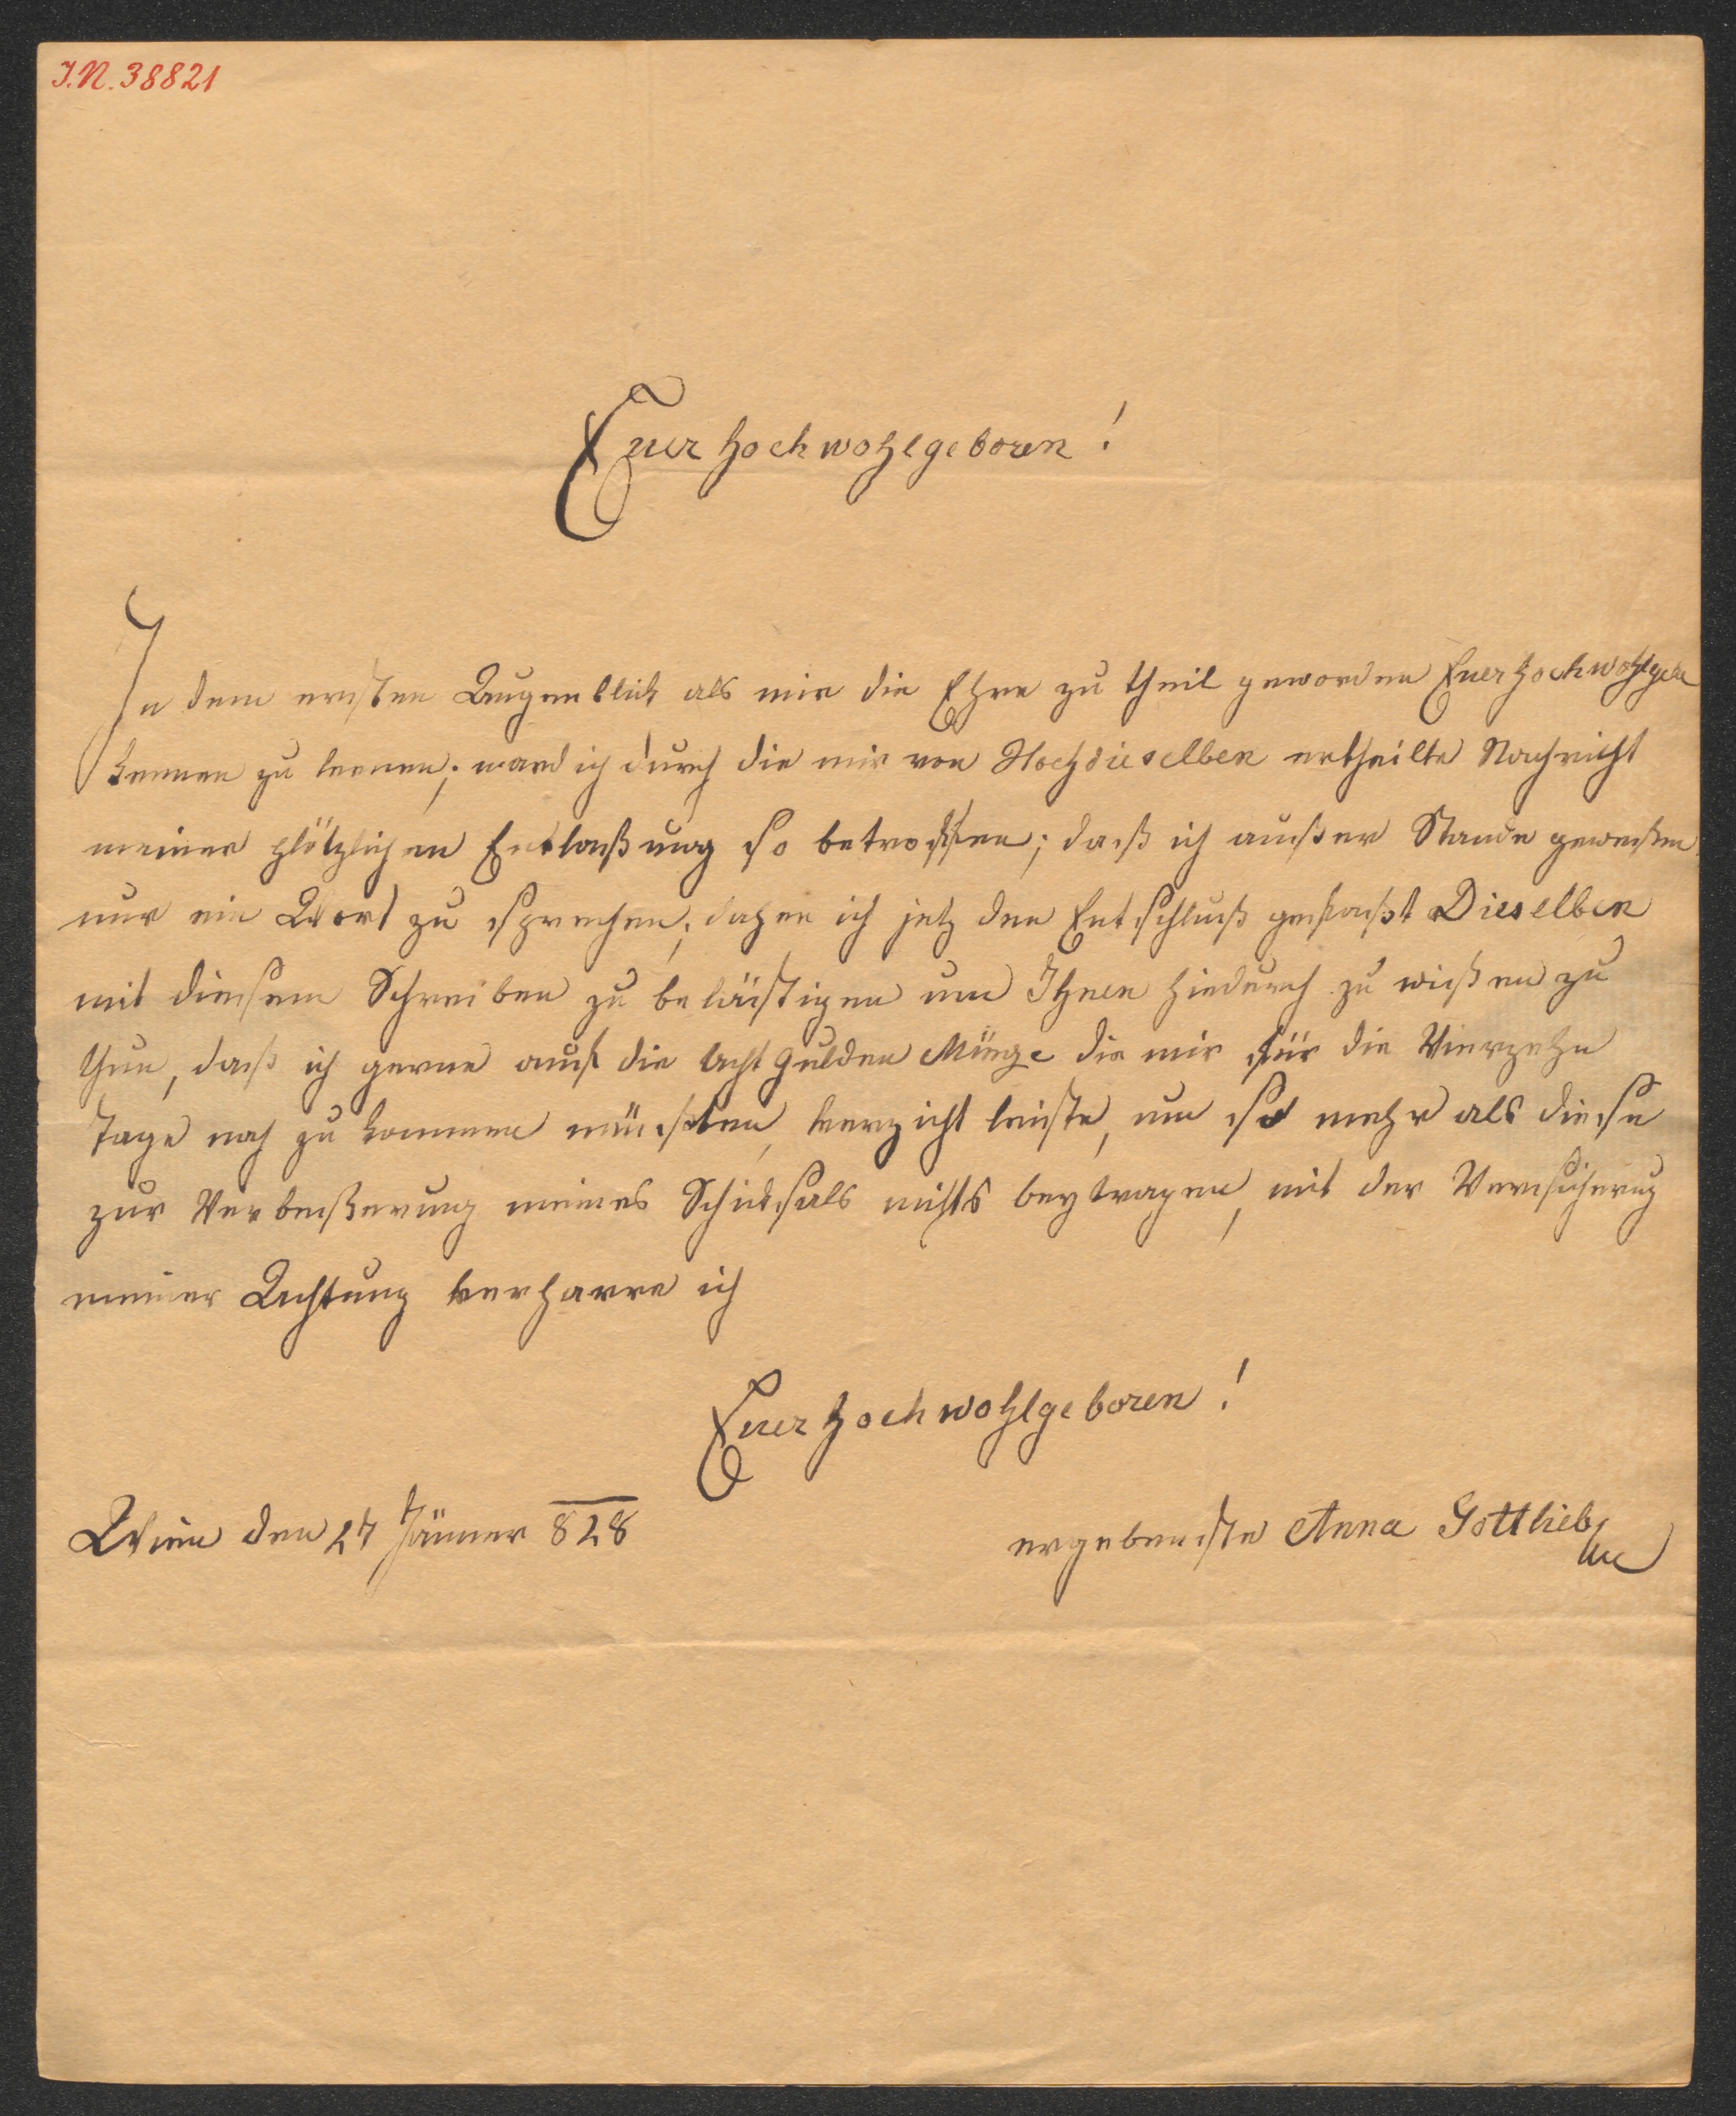 I.N. 38821
Euer Hochwohlgeboren!
In dem ersten Augenblick als mir die Ehre zu theil geworden Euer Hochwohlgeb
kennen zu lernen; ward ich durch die mir von Hochdieselben ertheilte Nachricht
meiner plötzlichen Entlaßung so betroffen; daß ich außer Stande gewesen
nur ein Wort zu sprechen; daher ich jetz den Entschluß gefaßt Dieselben
mit diesem Schreiben zu belästigen um Ihnen hiedurch zu wißen zu
thun, daß ich gerne auf die Acht Gulden Münze die mir für die Vierzehn
Tage noch zu kommen müsten, verzicht leiste, um so mehr als diese
zur Verbeßerung meines Schicksals nichts beytragen, mit der Versicherung
meiner Achtung verharre ich
Euer Hochwohlgeboren!
Wien den 27 Jänner 828
ergebenste Anna Gottlieb